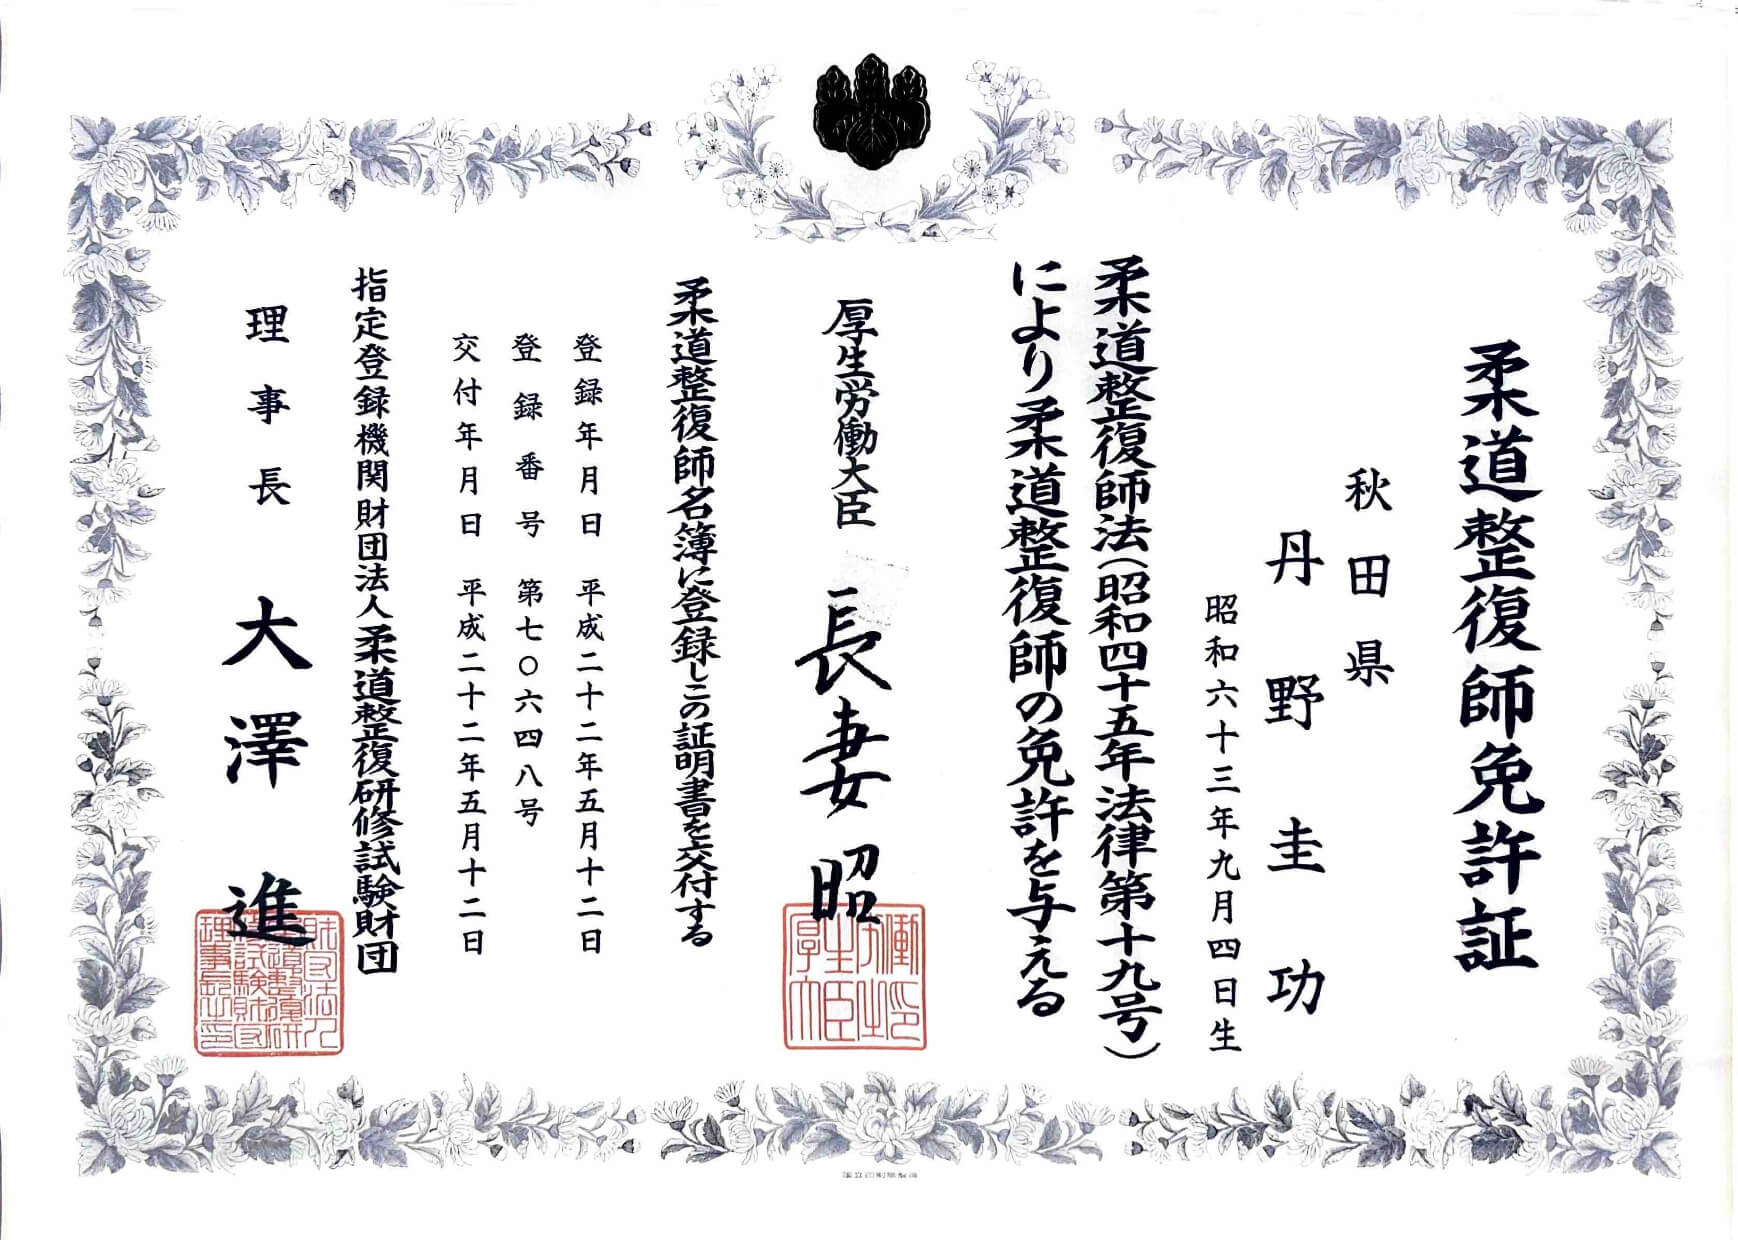 柔道整復師免許証
秋田県
丹野圭功
昭和六十三年九月四日生
柔道整復師法(昭和四十五年法律第十九号)
により柔道整復師の免許を与える
厚生労働大臣 長妻昭
柔道整復師名簿に登録しこの証明書を交付する
登録年月日 平成二十二年五月十二日
登録番号 第七〇六四八号
交付年月日 平成二十二年五月十二日
指定登録機関財団法人柔道整復研修試験財団
理事長 大澤進